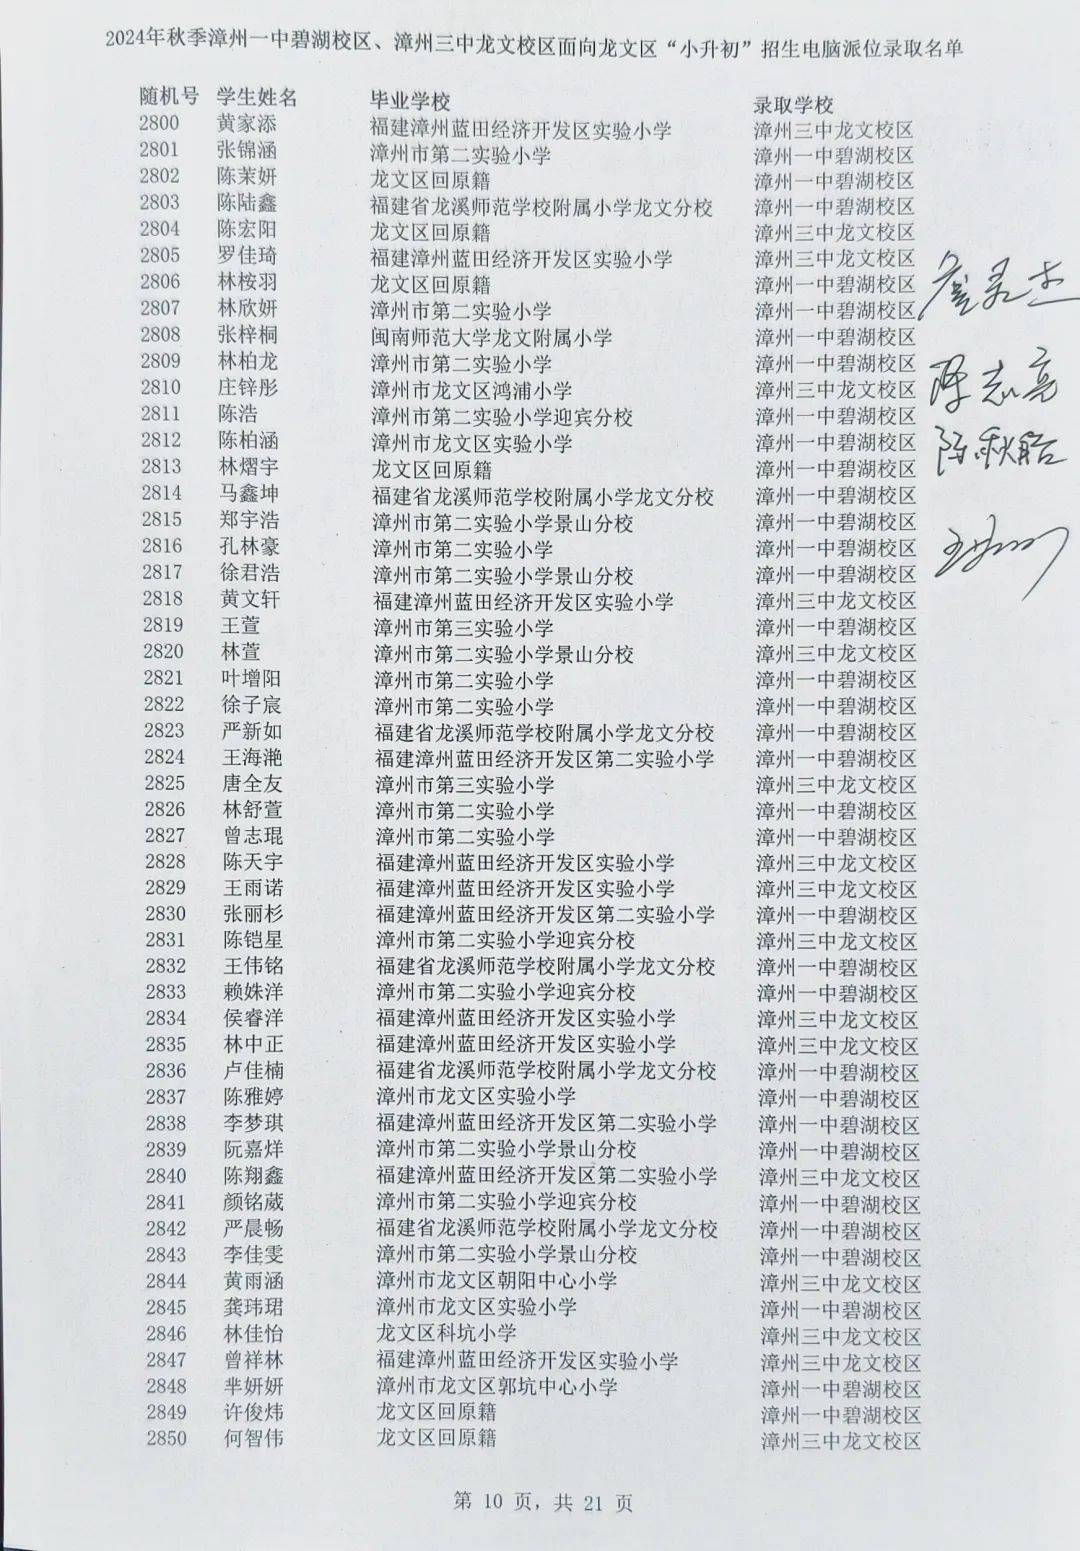 2024年秋季漳州一中碧湖校区、漳州三中龙文校区面向龙文区“小升初”招生电脑派位录取名单
随机号 学生姓名 毕业学校 录取学校
2800 黄家添 福建漳州蓝田经济开发区实验小学 漳州三中龙文校区
2801 张锦涵 漳州市第二实验小学 漳州一中碧湖校区
2802 陈茉妍 龙文区回原籍 漳州一中碧湖校区
2803 陈陆鑫 福建省龙溪师范学校附属小学龙文分校 漳州一中碧湖校区
2804 陈宏阳 龙文区回原籍 漳州三中龙文校区
2805 罗佳琦 福建漳州蓝田经济开发区实验小学 漳州三中龙文校区
2806 林桉羽 龙文区回原籍 漳州一中碧湖校区
2807 林欣妍 漳州市第二实验小学 漳州一中碧湖校区
2808 张梓桐 闽南师范大学龙文附属小学 漳州一中碧湖校区
2809 林柏龙 漳州市第二实验小学 漳州一中碧湖校区
2810 庄锌彤 漳州市龙文区鸿浦小学 漳州三中龙文校区
2811 陈浩 漳州市第二实验小学迎宾分校 漳州一中碧湖校区
2812 陈柏涵 漳州市龙文区实验小学 漳州一中碧湖校区
2813 林熠宇 龙文区回原籍 漳州一中碧湖校区
2814 马鑫坤 福建省龙溪师范学校附属小学龙文分校 漳州一中碧湖校区
2815 郑宇浩 漳州市第二实验小学景山分校 漳州一中碧湖校区
2816 孔林豪 漳州市第二实验小学 漳州一中碧湖校区
2817 徐君浩 漳州市第二实验小学景山分校 漳州一中碧湖校区
2818 黄文轩 福建漳州蓝田经济开发区实验小学 漳州三中龙文校区
2819 王萱 漳州市第三实验小学 漳州一中碧湖校区
2820 林萱 漳州市第二实验小学景山分校 漳州三中龙文校区
2821 叶增阳 漳州市第二实验小学 漳州一中碧湖校区
2822 徐子宸 漳州市第二实验小学 漳州一中碧湖校区
2823 严新如 福建省龙溪师范学校附属小学龙文分校 漳州一中碧湖校区
2824 王海滟 福建漳州蓝田经济开发区第二实验小学 漳州一中碧湖校区
2825 唐全友 漳州市第三实验小学 漳州三中龙文校区
2826 林舒萱 漳州市第二实验小学 漳州一中碧湖校区
2827 曾志琨 漳州市第二实验小学 漳州一中碧湖校区
2828 陈天宇 福建漳州蓝田经济开发区实验小学 漳州三中龙文校区
2829 王雨诺 福建漳州蓝田经济开发区实验小学 漳州三中龙文校区
2830 张丽杉 福建漳州蓝田经济开发区第二实验小学 漳州一中碧湖校区
2831 陈铠星 漳州市第二实验小学迎宾分校 漳州三中龙文校区
2832 王伟铭 福建省龙溪师范学校附属小学龙文分校 漳州一中碧湖校区
2833 赖姝洋 漳州市第二实验小学迎宾分校 漳州一中碧湖校区
2834 侯睿洋 福建漳州蓝田经济开发区实验小学 漳州三中龙文校区
2835 林中正 福建漳州蓝田经济开发区实验小学 漳州三中龙文校区
2836 卢佳楠 福建省龙溪师范学校附属小学龙文分校 漳州一中碧湖校区
2837 陈雅婷 漳州市龙文区实验小学 漳州一中碧湖校区
2838 李梦琪 福建漳州蓝田经济开发区第二实验小学 漳州一中碧湖校区
2839 阮嘉烊 漳州市第二实验小学景山分校 漳州一中碧湖校区
2840 陈翔鑫 福建漳州蓝田经济开发区第二实验小学 漳州三中龙文校区
2841 颜铭葳 漳州市第二实验小学迎宾分校 漳州一中碧湖校区
2842 严晨畅 福建省龙溪师范学校附属小学龙文分校 漳州一中碧湖校区
2843 李佳雯 漳州市第二实验小学景山分校 漳州一中碧湖校区
2844 黄雨涵 漳州市龙文区朝阳中心小学 漳州三中龙文校区
2845 龚玮珺 漳州市龙文区实验小学 漳州一中碧湖校区
2846 林佳怡 龙文区科坑小学 漳州三中龙文校区
2847 曾祥林 福建漳州蓝田经济开发区实验小学 漳州三中龙文校区
2848 芈妍妍 漳州市龙文区郭坑中心小学 漳州一中碧湖校区
2849 许俊炜 龙文区回原籍 漳州一中碧湖校区
2850 何智伟 龙文区回原籍 漳州三中龙文校区
陈志亮
第 10 页，共 21 页